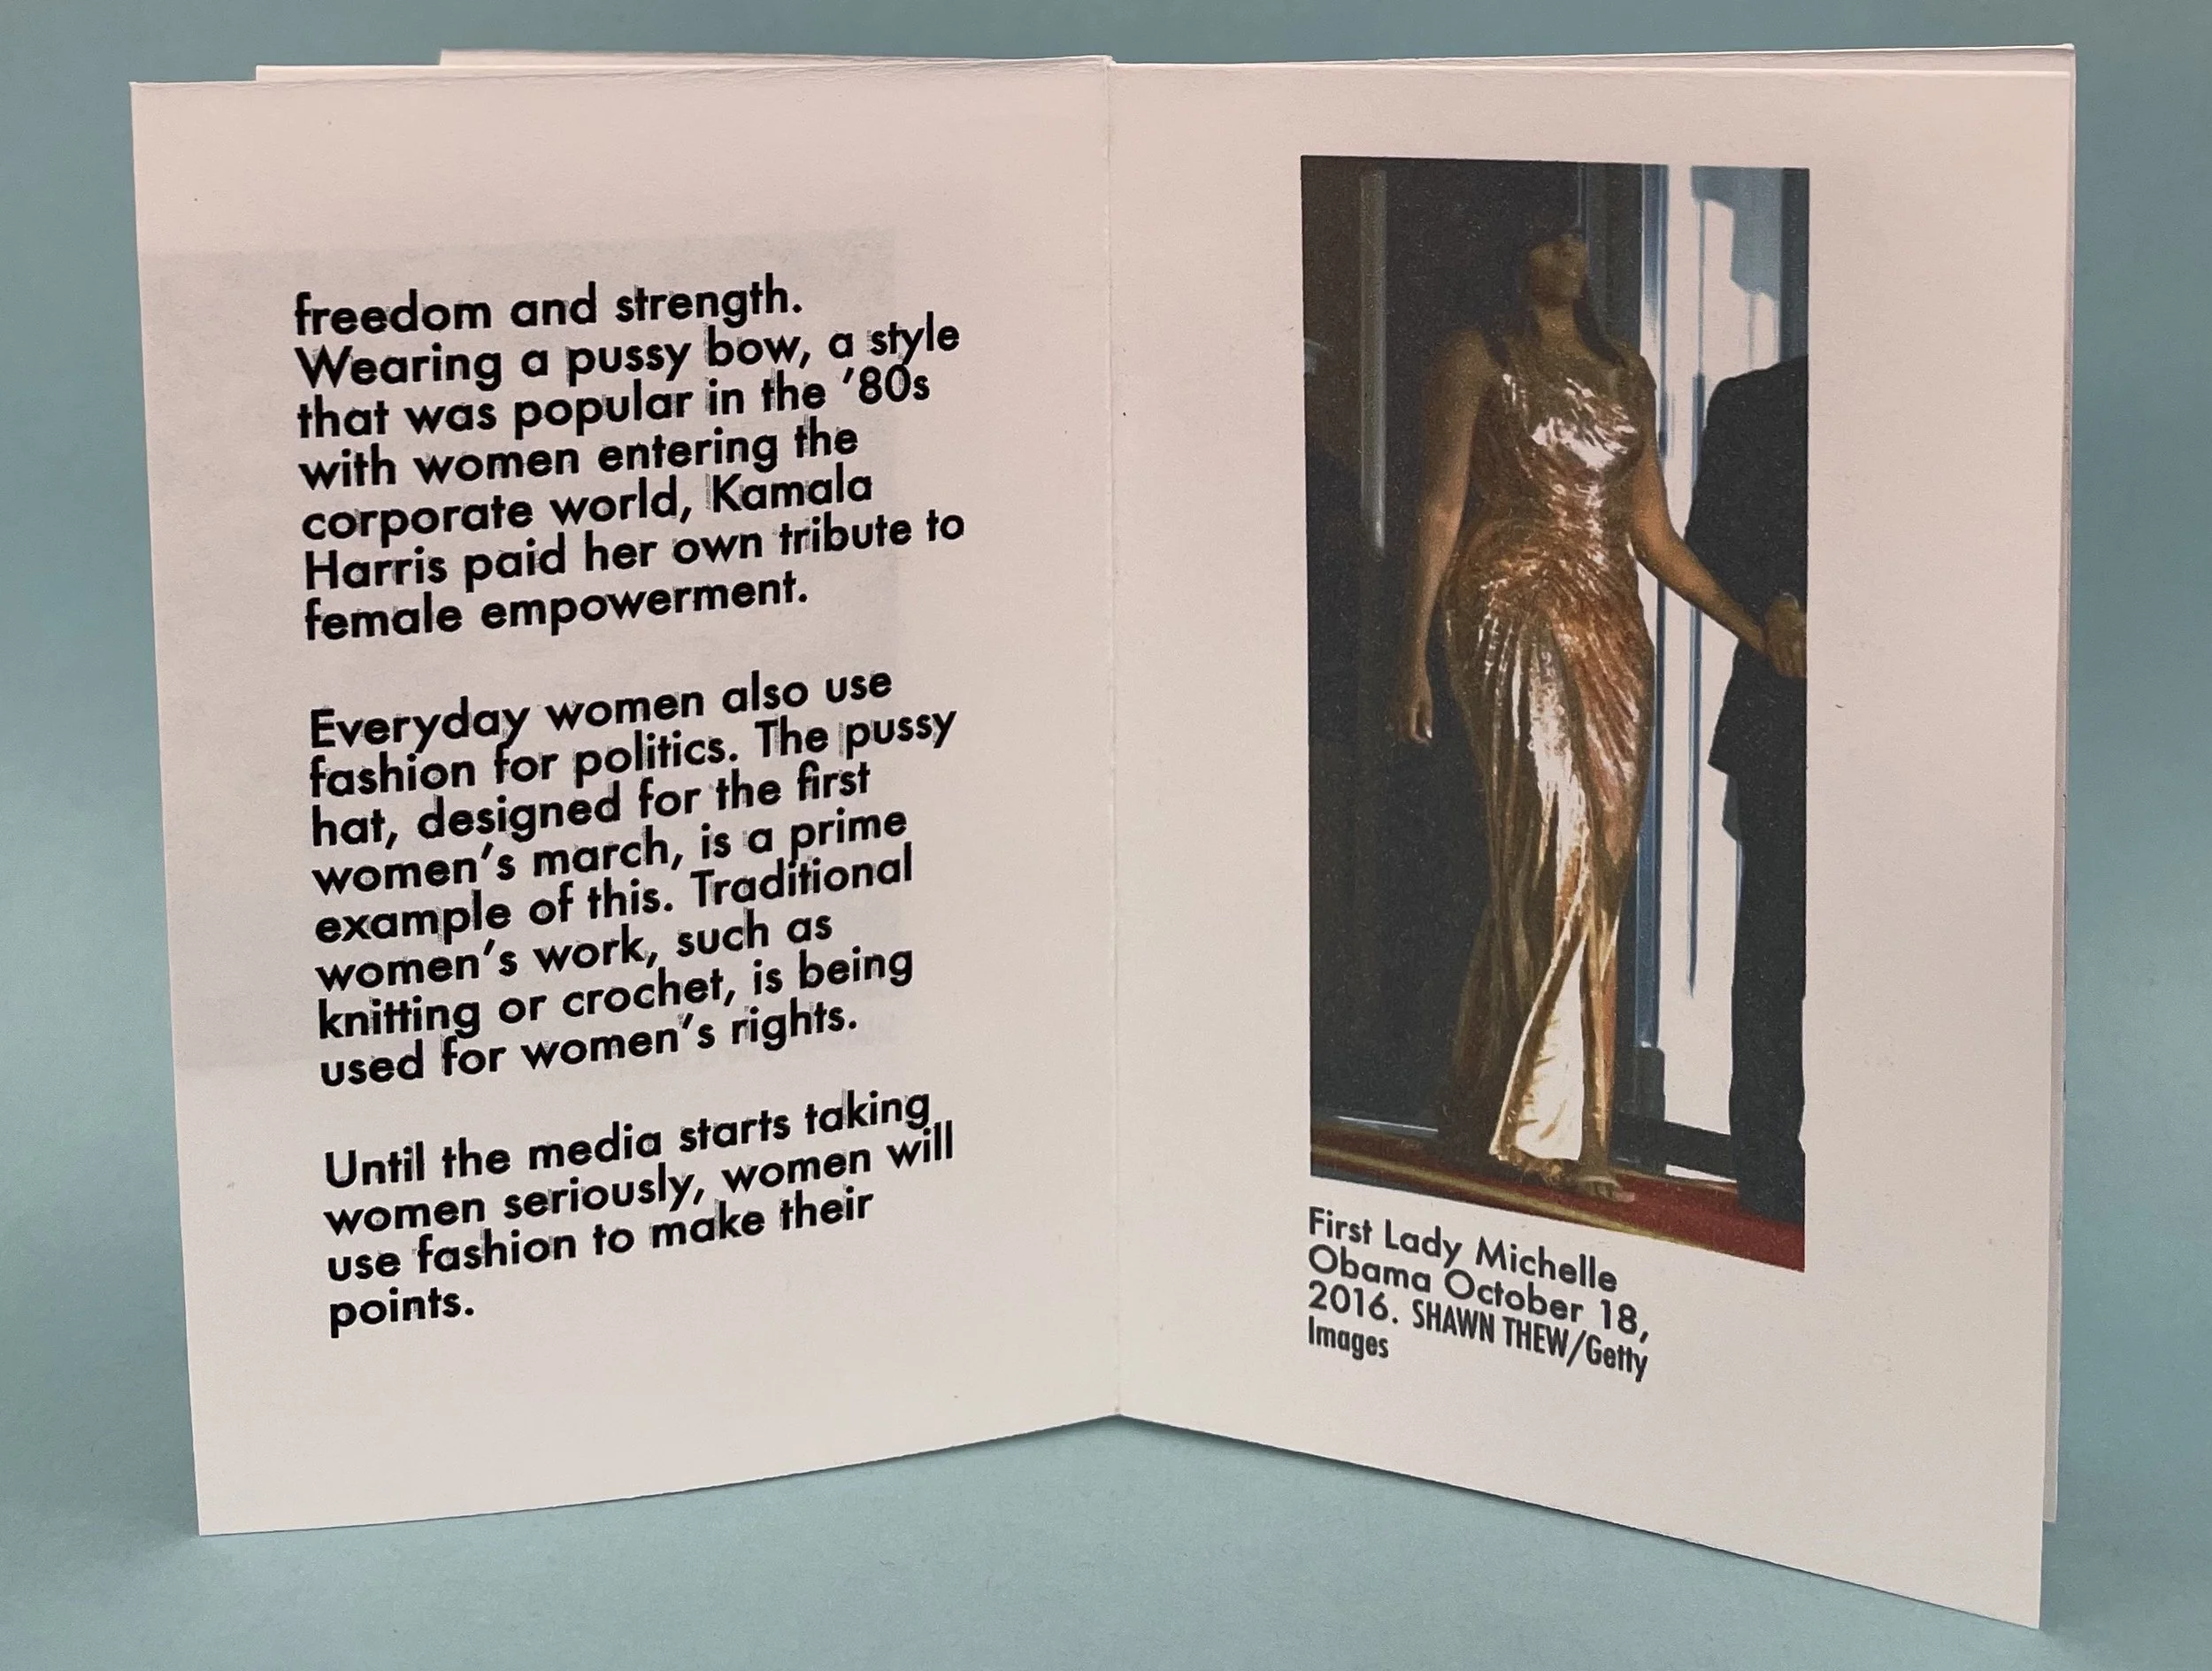 freedom and strength.
Wearing a pussy bow, a style
that was popular in the ’80s
with women entering the
corporate world, Kamala
Harris paid her own tribute to
female empowerment.
Everyday women also use
fashion for politics. The pussy
hat, designed for the first
women’s march, is a prime
example of this. Traditional
women’s work, such as
knitting or crochet, is being
used for women’s rights.
Until the media starts taking
women seriously, women will
use fashion to make their
points.
First Lady Michelle
Obama October 18,
2016. SHAWN THEW/Getty
Images